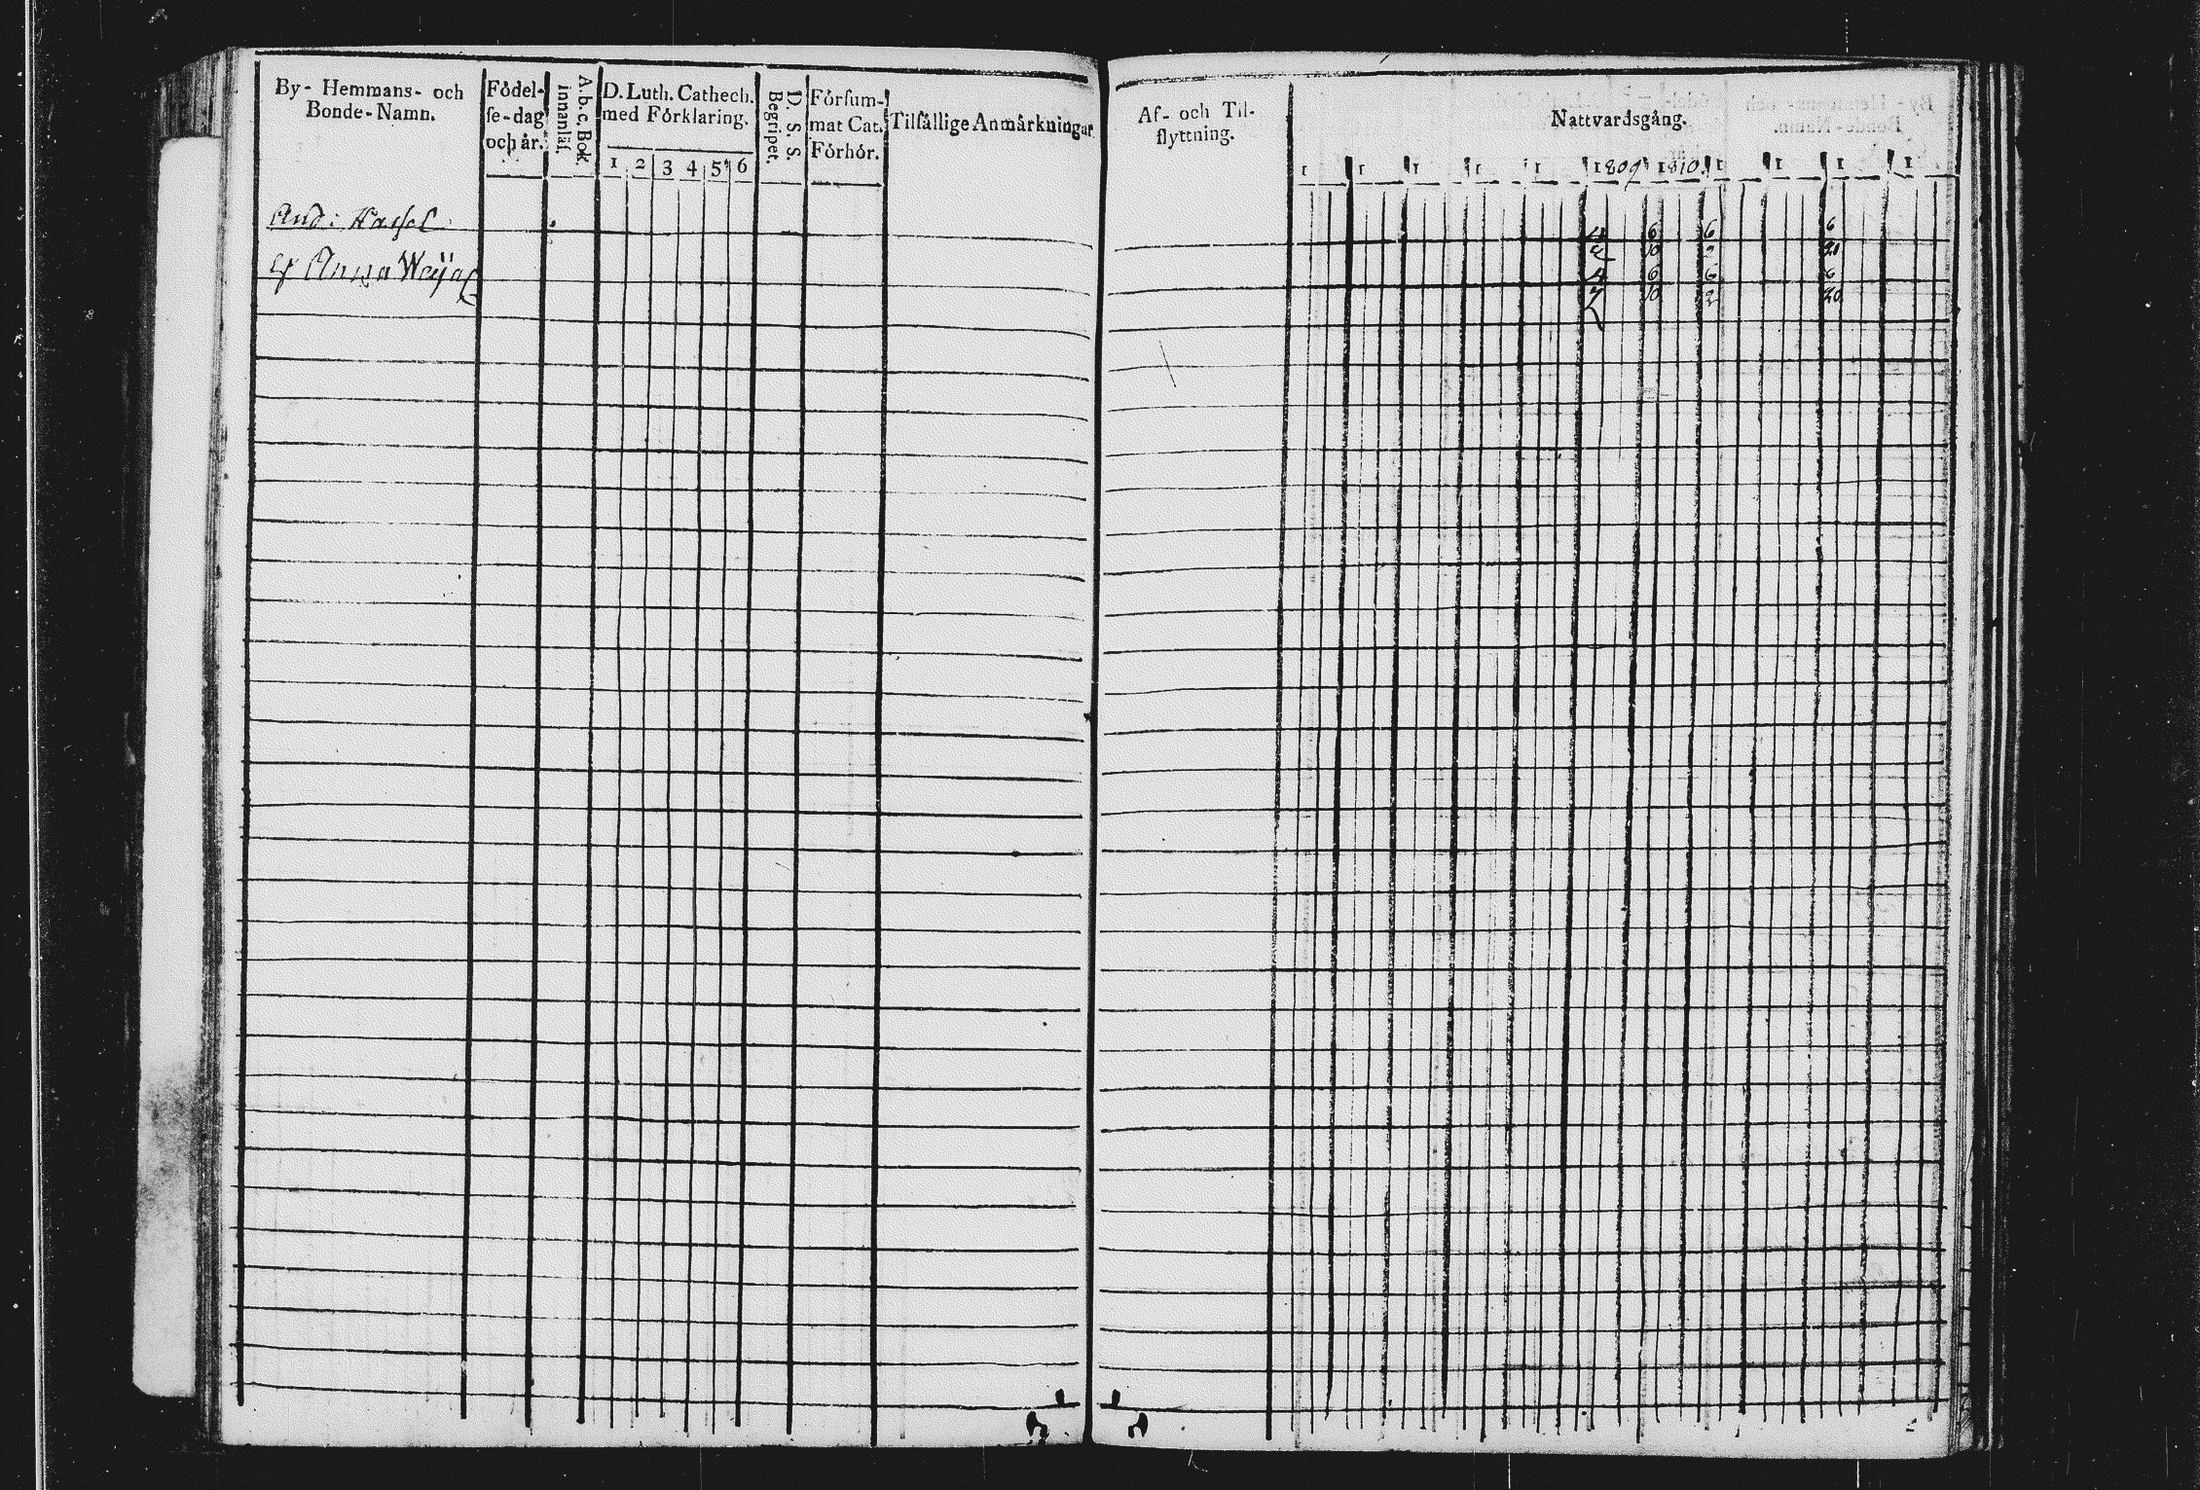 By- Hemmans- och
Bonde-Namn.
Födel-
se-dag
och år.
A. b. c. Bok.
innanläs.
D. Luth. Cathech.
med Förklaring.
1 2 3 4 5 6
D. S. S.
Begripet.
Försum-
mat Cat.
Förhör.
Tilfällige Anmärkningar
And: Hassel
Anna
Af- och Til-
flyttning.
Nattvardsgång.
1 1 1 1 1 1809 1810 1 1 1 1
6 6 6
10 2 20
6 6 6
10 2 20